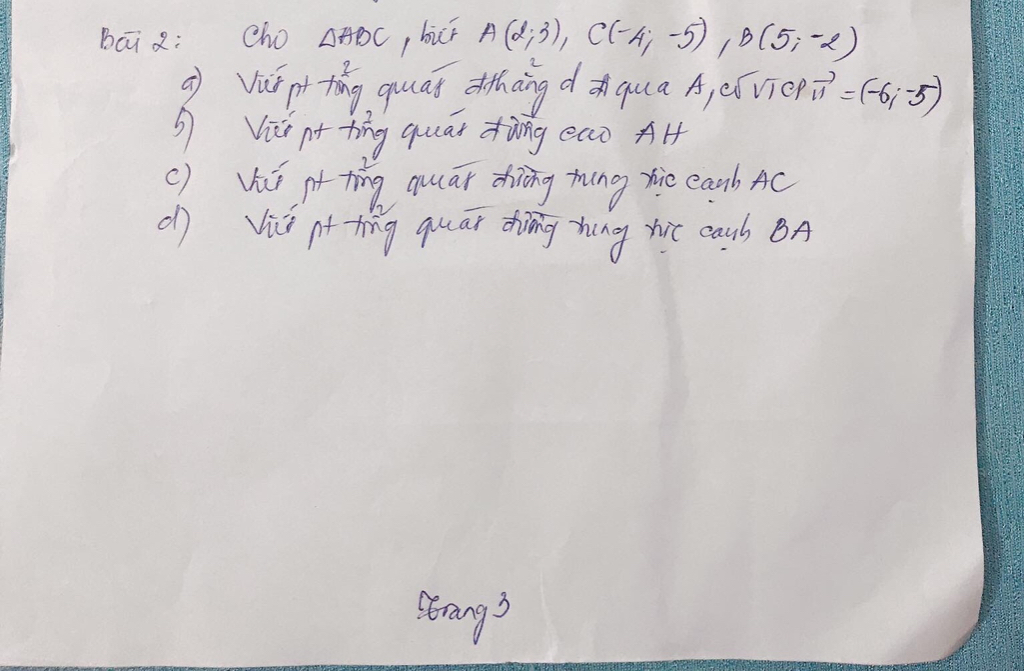 Bài 2: Cho ΔABC, biết A(2;3), C(-4; -5), B(5; -2)
a) Viết pt tổng quát đthẳng d đi qua A, có VTCP u⃗ = (-6; -5)
b) Viết pt tổng quát đường cao AH
c) Viết pt tổng quát đường trung trực cạnh AC
d) Viết pt tổng quát đường trung trực cạnh BA
Trang 3